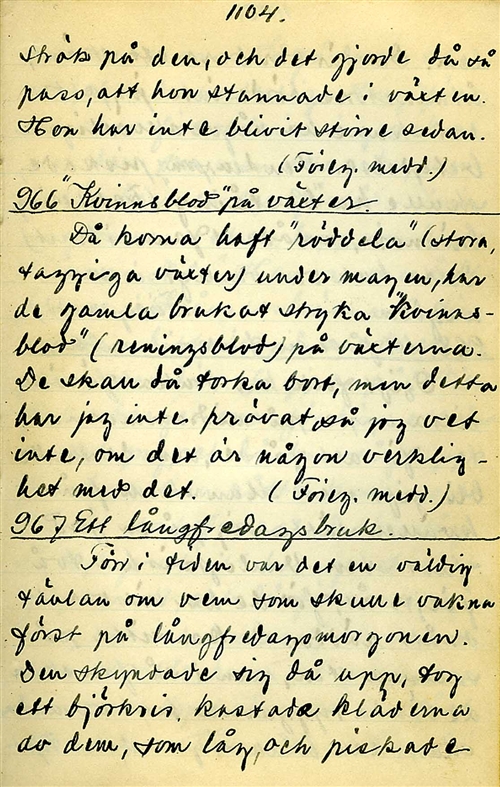 1104.
ströks på den, och det gjorde då så
pass, att hon stannade i växten.
Hon har inte blivit större sedan.
(Föreg. medd.)
966 "Kvinnsblod" på växter.
Då korna haft "röddela" (stora,
taggiga växter) under magen, har
de gamla brukat stryka "kvinns-
blod" (reningsblod) på växterna.
De skall då torka bort, men detta
har jag inte prövat, så jag vet
inte, om det är någon verklig-
het med det. (Föreg. medd.)
967 Ett långfredagsbruk.
Förr i tiden var det en väldig
tävlan om vem som skulle vakna
först på långfredagsmorgonen.
Den skyndade sig då upp, tog
ett björkris, kastade kläderna
av dem, som låg, och piskade